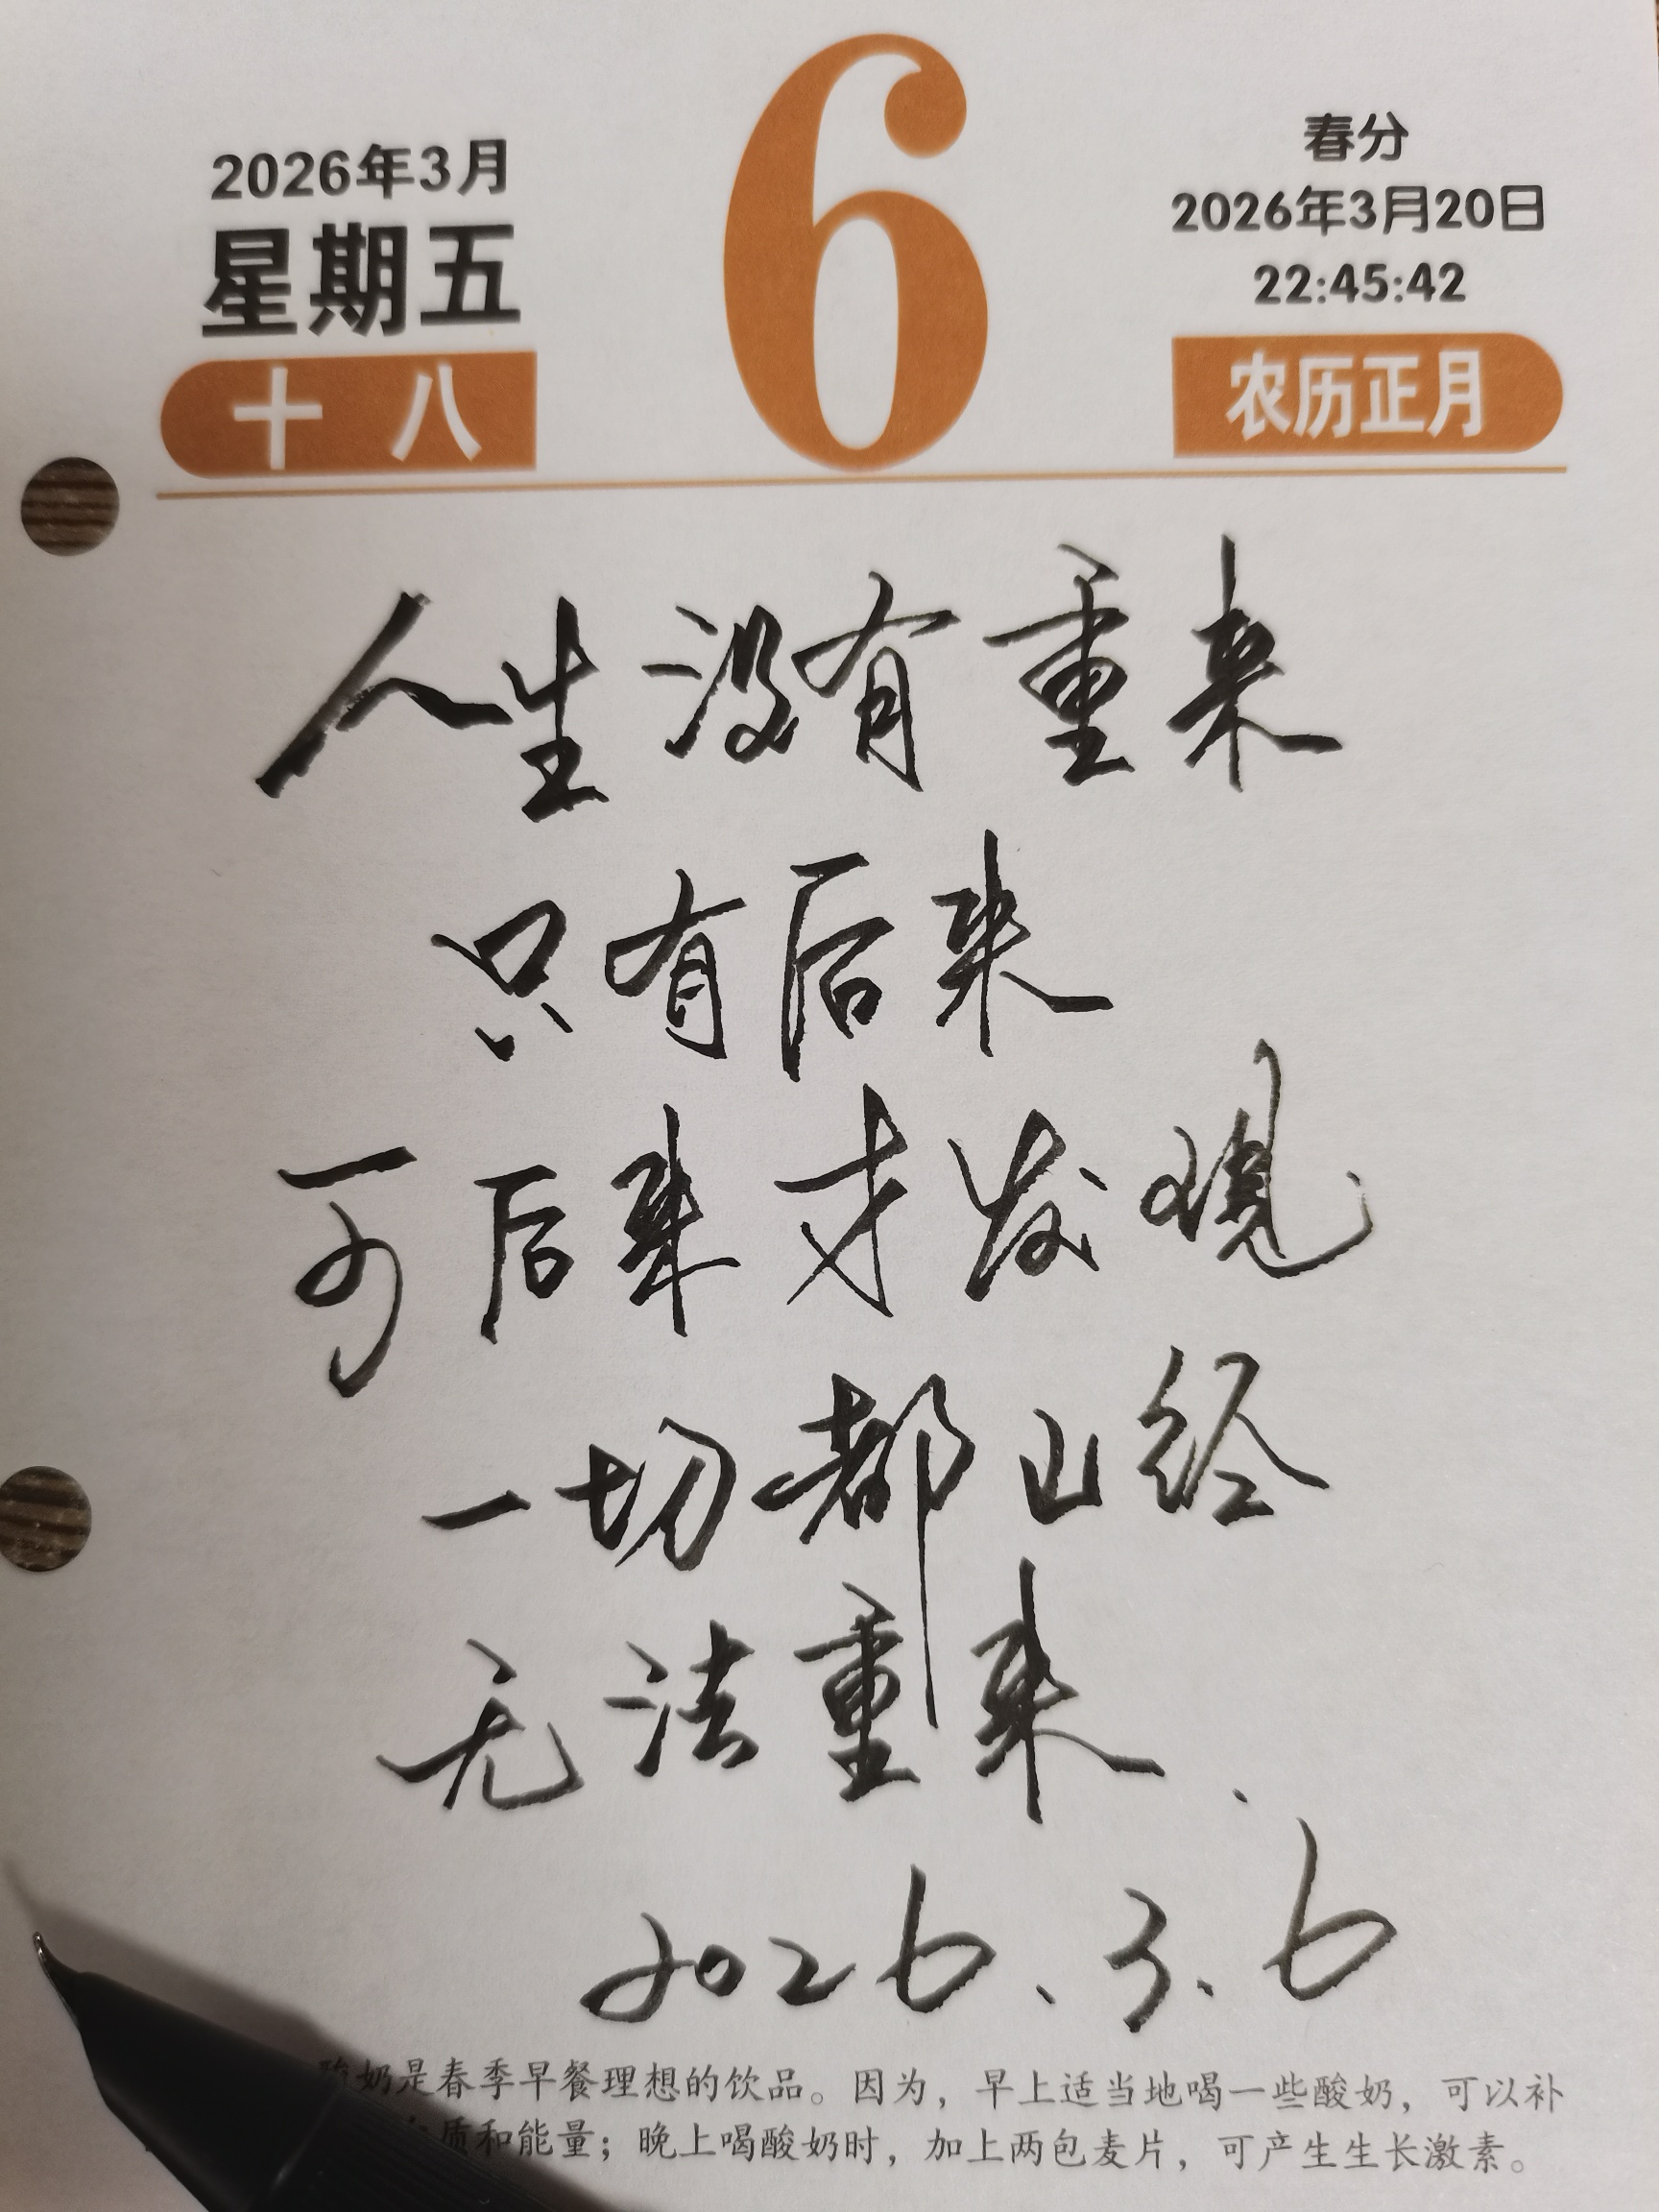 2026年3月
星期五
十八
6
春分
2026年3月20日
22:45:42
农历正月
人生没有重来
只有后来
可后来才发现
一切都已经
无法重来.
2026.3.6
酸奶是春季早餐理想的饮品。因为，早上适当地喝一些酸奶，可以补
质和能量；晚上喝酸奶时，加上两包麦片，可产生生长激素。